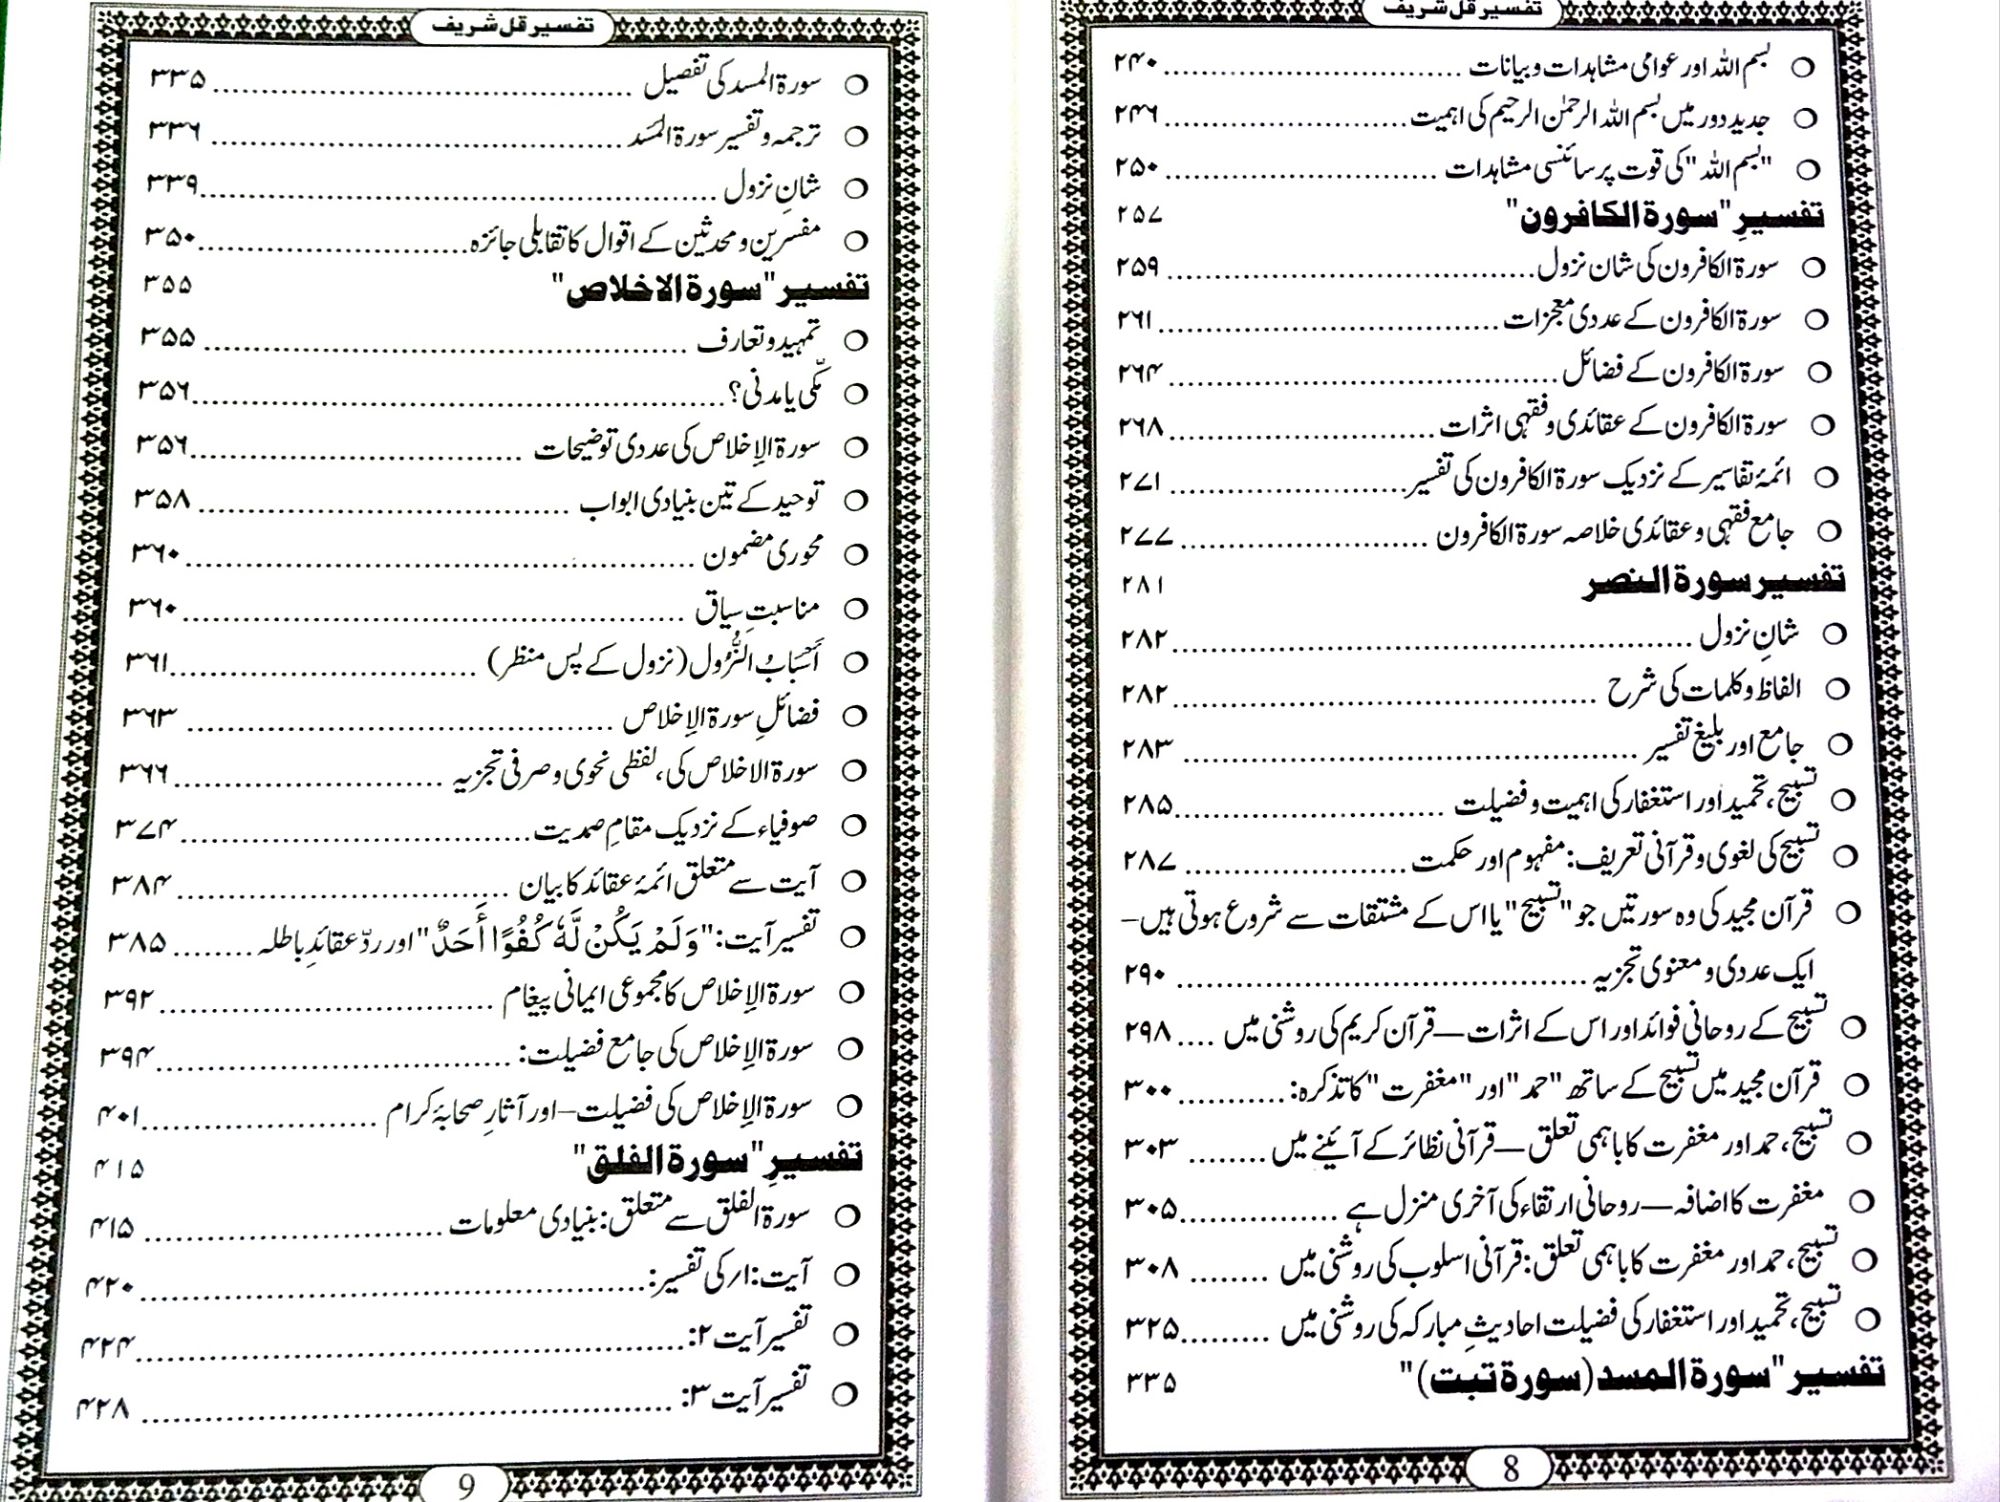 تفسیر قل شریف
بسم اللہ اور عوامی مشاہدات و بیانات ۲۴۰
جدید دور میں بسم اللہ الرحمٰن الرحیم کی اہمیت ۲۴۶
"بسم اللہ" کی قوت پر سائنسی مشاہدات ۲۵۰
تفسیرِ "سورۃ الکافرون" ۲۵۷
سورۃ الکافرون کی شان نزول ۲۵۹
سورۃ الکافرون کے عددی معجزات ۲۶۱
سورۃ الکافرون کے فضائل ۲۶۴
سورۃ الکافرون کے عقائدی و فقہی اثرات ۲۶۸
ائمۂ تفاسیر کے نزدیک سورۃ الکافرون کی تفسیر ۲۷۱
جامع فقہی و عقائدی خلاصہ سورۃ الکافرون ۲۷۷
تفسیر سورۃ النصر ۲۸۱
شانِ نزول ۲۸۲
الفاظ و کلمات کی شرح ۲۸۲
جامع اور بلیغ تفسیر ۲۸۳
تسبیح، تحمید اور استغفار کی اہمیت و فضیلت ۲۸۵
تسبیح کی لغوی و قرآنی تعریف: مفہوم اور حکمت ۲۸۷
قرآن مجید کی وہ سورتیں جو "تسبیح" یا اس کے مشتقات سے شروع ہوتی ہیں–
ایک عددی و معنوی تجزیہ ۲۹۰
تسبیح کے روحانی فوائد اور اس کے اثرات — قرآن کریم کی روشنی میں ۲۹۸
قرآن مجید میں تسبیح کے ساتھ "حمد" اور "مغفرت" کا تذکرہ: ۳۰۰
تسبیح، حمد اور مغفرت کا باہمی تعلق — قرآنی نظائر کے آئینے میں ۳۰۳
مغفرت کا اضافہ — روحانی ارتقاء کی آخری منزل ہے ۳۰۵
تسبیح، حمد اور مغفرت کا باہمی تعلق: قرآنی اسلوب کی روشنی میں ۳۰۸
تسبیح، تحمید اور استغفار کی فضیلت احادیثِ مبارکہ کی روشنی میں ۳۲۵
تفسیر "سورۃ المسد (سورۃ تبت)" ۳۳۵
8
تفسیر قل شریف
سورۃ المسد کی تفصیل ۳۳۵
ترجمہ و تفسیر سورۃ المَسَد ۳۳۶
شانِ نزول ۳۳۹
مفسرین و محدثین کے اقوال کا تقابلی جائزہ ۳۵۰
تفسیر "سورۃ الاخلاص" ۳۵۵
تمہید و تعارف ۳۵۵
مکّی یا مدنی؟ ۳۵۶
سورۃ الإخلاص کی عددی توضیحات ۳۵۶
توحید کے تین بنیادی ابواب ۳۵۸
محوری مضمون ۳۶۰
مناسبتِ سیاق ۳۶۰
أَسْبَابُ النُّزُول (نزول کے پس منظر) ۳۶۱
فضائلِ سورۃ الإخلاص ۳۶۳
سورۃ الاخلاص کی، لفظی نحوی و صرفی تجزیہ ۳۶۶
صوفیاء کے نزدیک مقامِ صمدیت ۳۷۴
آیت سے متعلق ائمۂ عقائد کا بیان ۳۸۴
تفسیر آیت: "وَلَمْ يَكُنْ لَّهٗ كُفُوًا أَحَدٌ" اور ردّ عقائدِ باطلہ ۳۸۵
سورۃ الإخلاص کا مجموعی ایمانی پیغام ۳۹۲
سورۃ الإخلاص کی جامع فضیلت: ۳۹۴
سورۃ الإخلاص کی فضیلت – اور آثارِ صحابۂ کرام ۴۰۱
تفسیرِ "سورۃ الفلق" ۴۱۵
سورۃ الفلق سے متعلق: بنیادی معلومات ۴۱۵
آیت: ۱؍ کی تفسیر: ۴۲۰
تفسیر آیت ۲: ۴۲۴
تفسیر آیت ۳: ۴۲۸
9